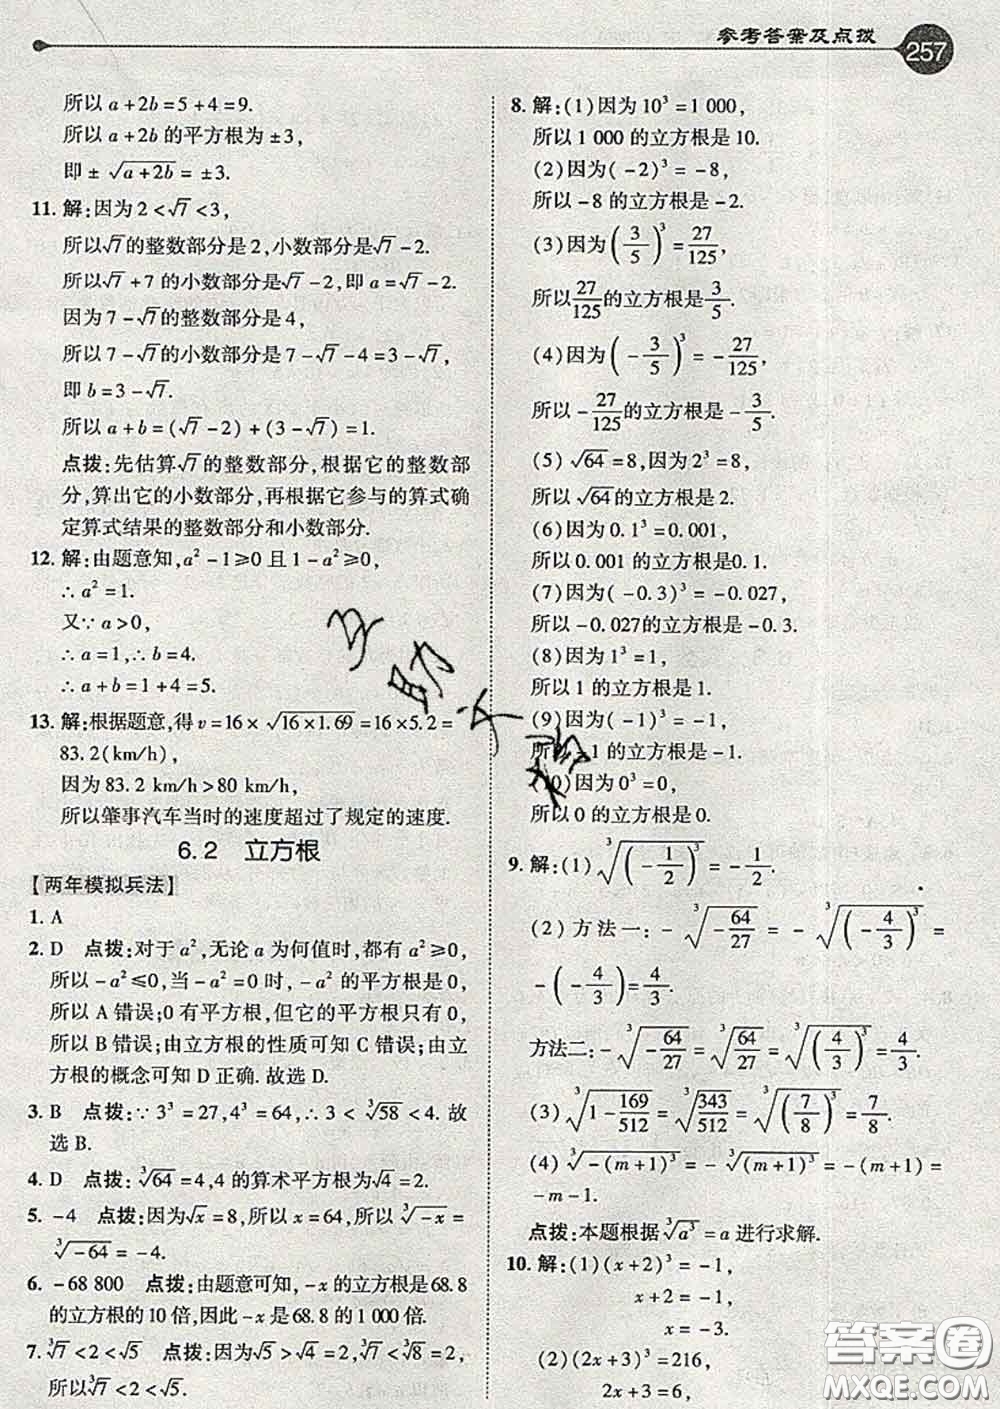 参考答案及点拨 257
所以 a+2b=5+4=9.
所以 a+2b 的平方根为±3,
即±√(a+2b)=±3.
11. 解:因为 2<√7<3,
所以√7的整数部分是2,小数部分是√7-2.
所以√7+7 的小数部分是√7-2,即 a=√7-2.
因为 7-√7的整数部分是4,
所以 7-√7的小数部分是 7-√7-4=3-√7,
即 b=3-√7.
所以 a+b=(√7-2)+(3-√7)=1.
点拨:先估算√7的整数部分,根据它的整数部
分,算出它的小数部分,再根据它参与的算式确
定算式结果的整数部分和小数部分.
12. 解:由题意知,a²-1≥0 且 1-a²≥0,
∴a²=1.
又∵a>0,
∴a=1,∴b=4.
∴a+b=1+4=5.
13. 解:根据题意,得 v=16×√(16×1.69)=16×5.2=
83.2(km/h),
因为 83.2 km/h>80 km/h,
所以肇事汽车当时的速度超过了规定的速度.
6.2 立方根
【两年模拟兵法】
1. A
2. D 点拨:对于 a²,无论 a 为何值时,都有 a²≥0,
所以-a²≤0,当-a²=0 时,-a²的平方根是0,
所以 A 错误;0 有平方根,但它的平方根只有0,
所以 B 错误;由立方根的性质可知 C 错误;由立
方根的概念可知 D 正确. 故选 D.
3. B 点拨:∵3³=27,4³=64,∴3<∛58<4. 故
选 B.
4. D 点拨:∛64=4,4 的算术平方根为√4=2.
5. -4 点拨:因为√x=8,所以 x=64,所以∛(-x)=
∛(-64)=-4.
6. -68 800 点拨:由题意可知,-x 的立方根是68.8
的立方根的10倍,因此-x 是68.8 的1 000倍.
7. ∛7<2<√5 点拨:因为√5>√4=2,∛7<∛8=2,
所以∛7<2<√5.
8. 解:(1)因为 10³=1 000,
所以 1 000 的立方根是 10.
(2)因为(-2)³=-8,
所以-8 的立方根是-2.
(3)因为(3/5)³=27/125,
所以27/125的立方根是3/5.
(4)因为(-3/5)³=-27/125,
所以-27/125的立方根是-3/5.
(5)√64=8,因为 2³=8,
所以√64的立方根是 2.
(6)因为 0.1³=0.001,
所以 0.001 的立方根是0.1.
(7)因为(-0.3)³=-0.027,
所以-0.027的立方根是-0.3.
(8)因为 1³=1,
所以 1 的立方根是1.
(9)因为(-1)³=-1,
所以-1 的立方根是-1.
(10)因为 0³=0,
所以 0 的立方根是0.
9. 解:(1)∛((-1/2)³)=-1/2.
(2)方法一:-∛(-64/27)=-∛((-4/3)³)=
-(-4/3)=4/3.
方法二:-∛(-64/27)=∛(64/27)=∛((4/3)³)=4/3.
(3)∛(1-169/512)=∛(343/512)=∛((7/8)³)=7/8.
(4)∛(-(m+1)³)=-∛((m+1)³)=-(m+1)=
-m-1.
点拨:本题根据∛(a³)=a 进行求解.
10. 解:(1)(x+2)³=-1,
x+2=-1,
x=-3.
(2)(2x+3)³=216,
2x+3=6,
答案圈
MXQE.COM